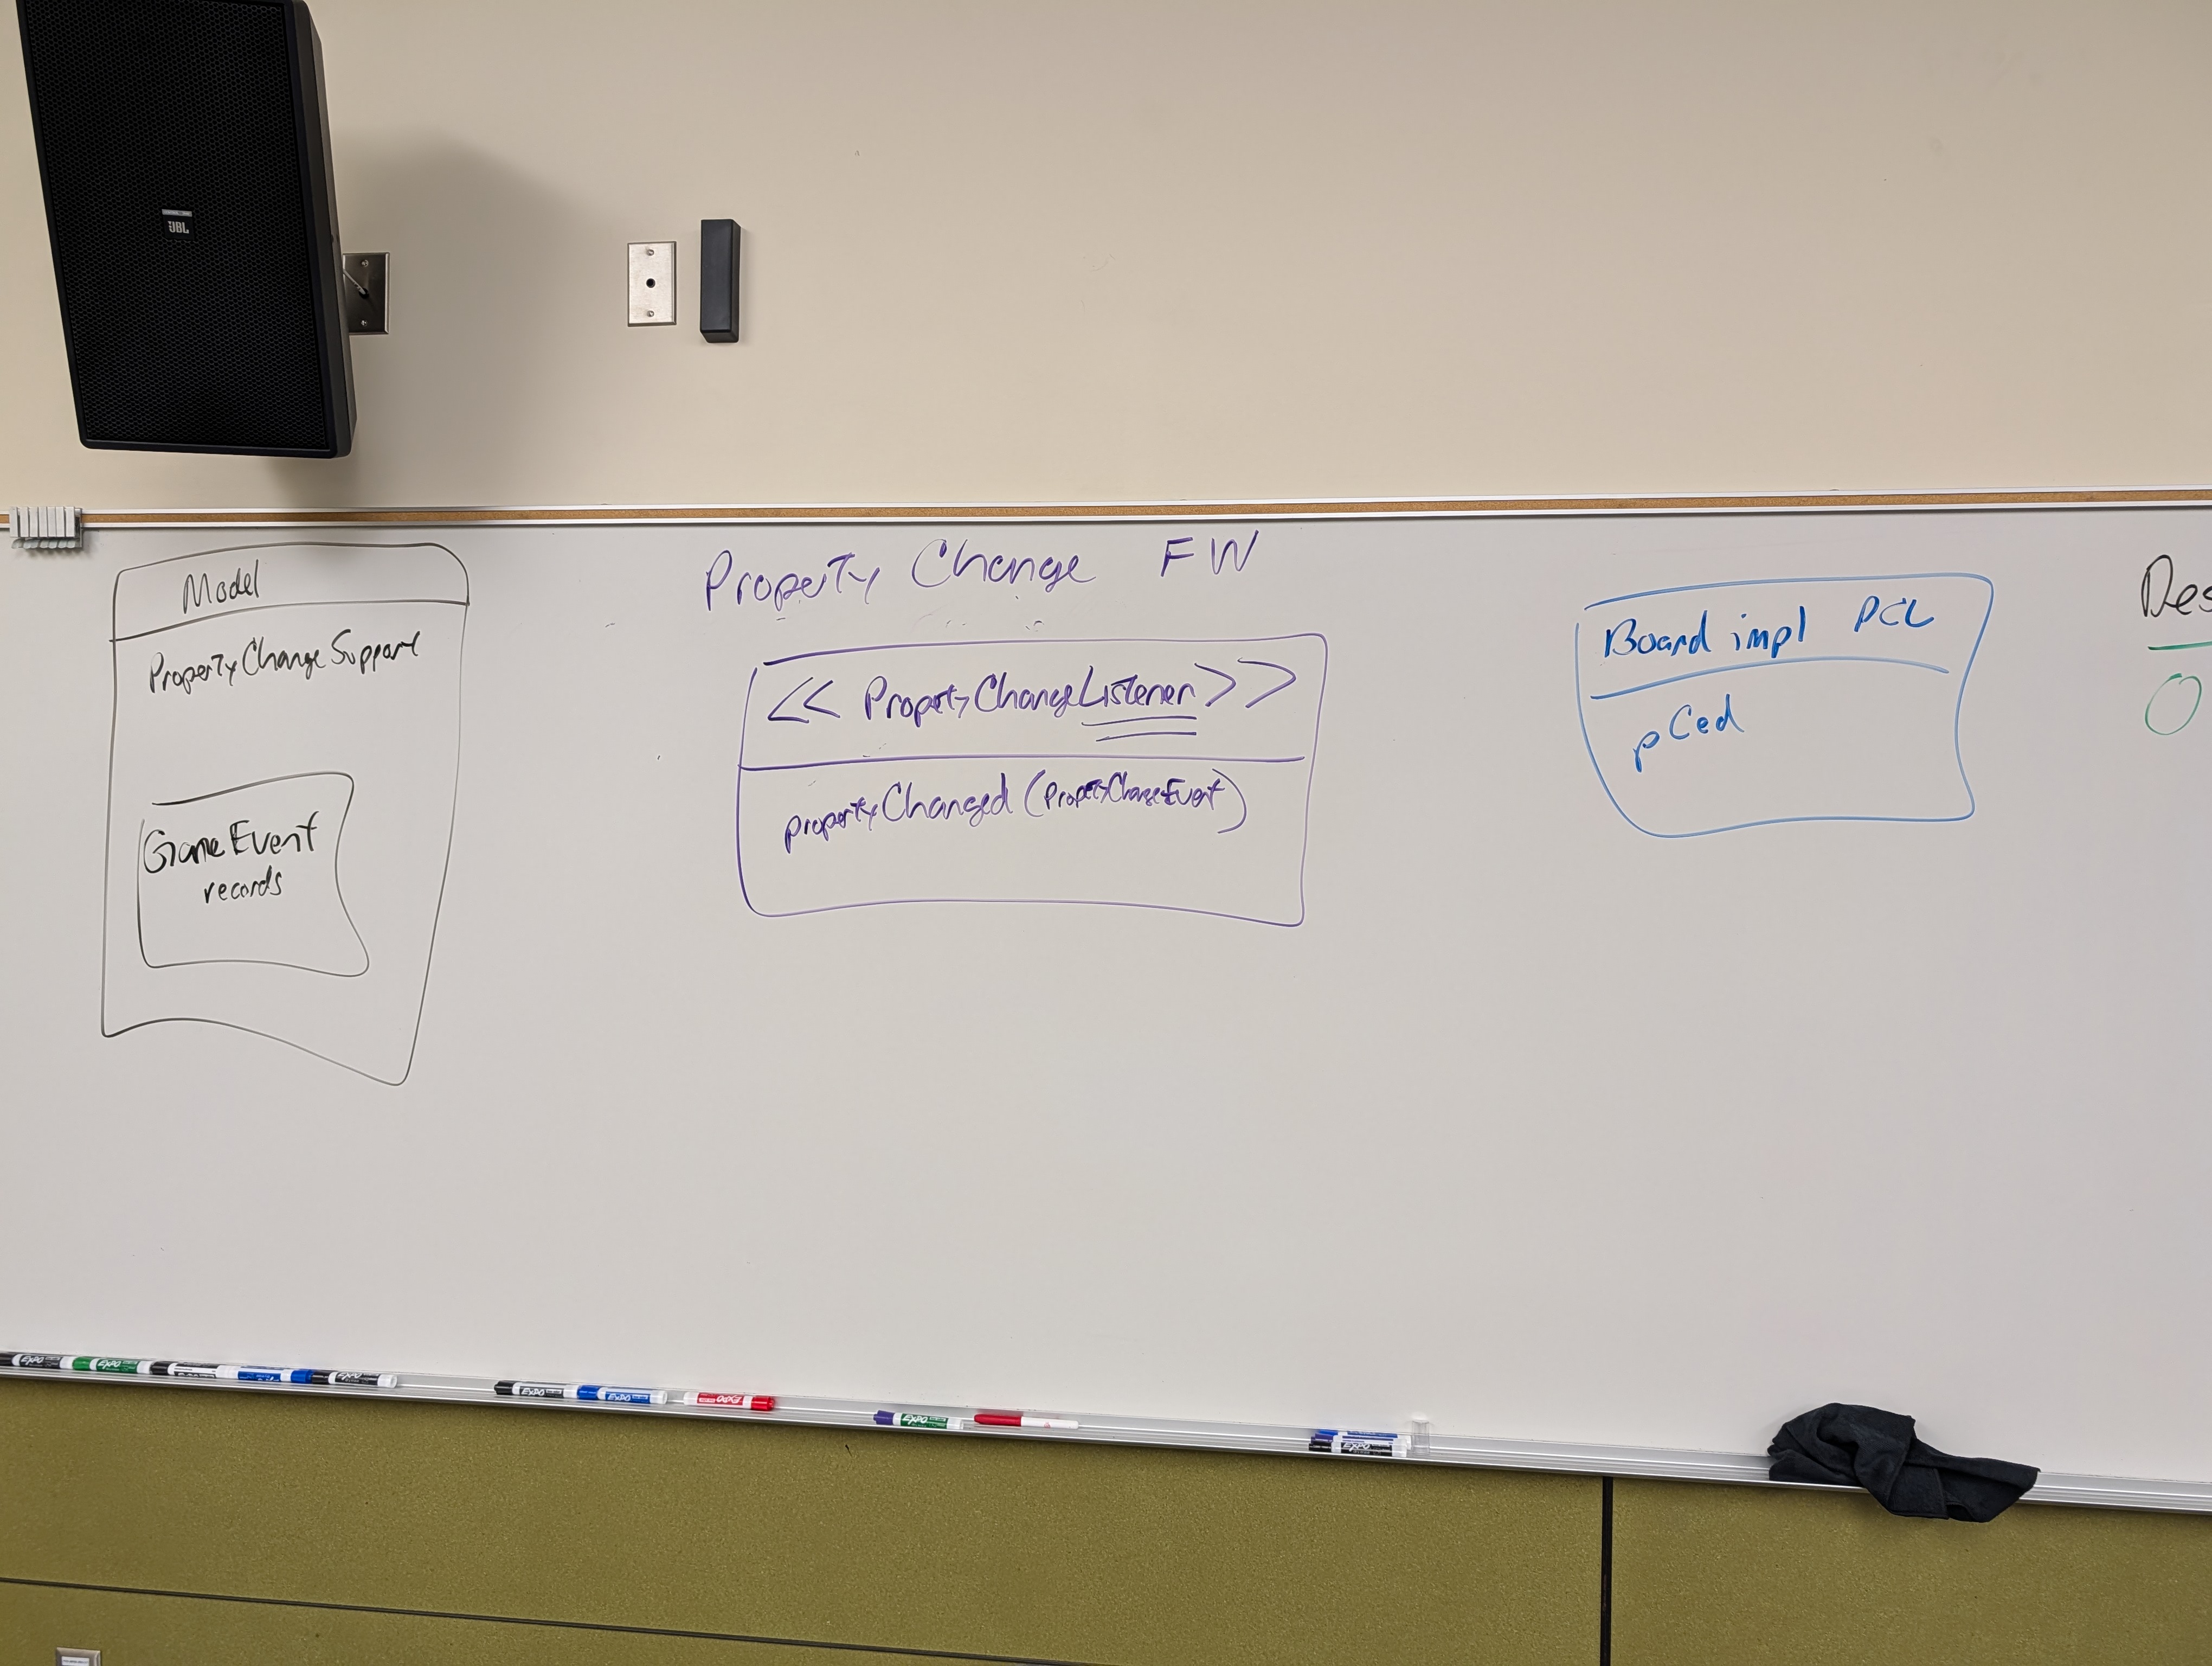 JBL
Model
PropertyChangeSupport
GameEvent
records
Property Change FW
<< PropertyChangeListener >>
propertyChanged (PropertyChangeEvent)
Board impl PCL
pCed
Des
O
EXPO
EXPO
EXPO
EXPO
EXPO
EXPO
EXPO
EXPO